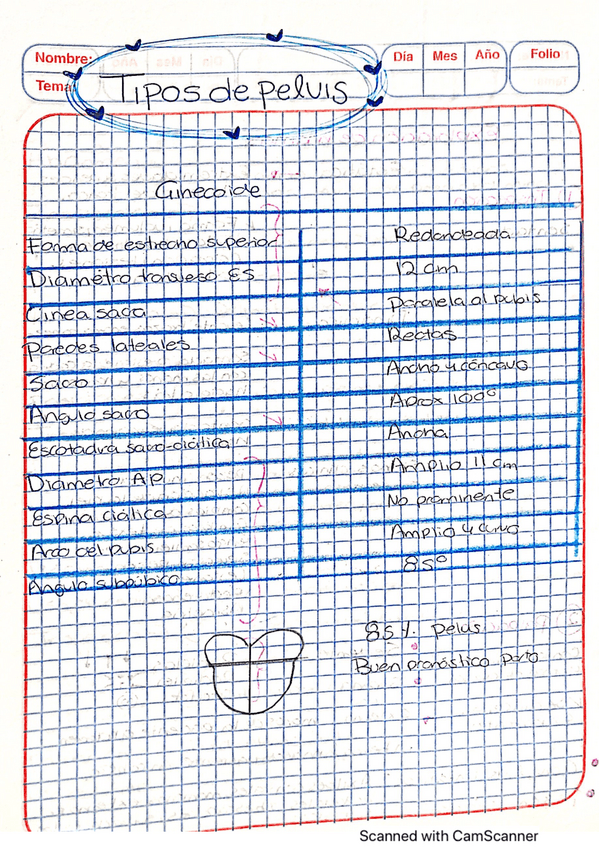 Nombre:
Tema:
Día Mes Año
Folio
Tipos de pelvis
Ginecoide
Forma de estrecho superior Redondeada
Diametro transverso ES 12 cm
Linea saca Paralela al pubis
Paredes laterales Rectas
Saco Ancho y cóncavo
Angulo saco Aprox 100°
Escotadura saco-ciática Ancha
Diametro AP Amplio 11 cm
Espina ciática No prominente
Arco del pubis Amplio y curvo
Angulo subpúbico 85°
85% pelvis
Buen pronóstico parto
Scanned with CamScanner